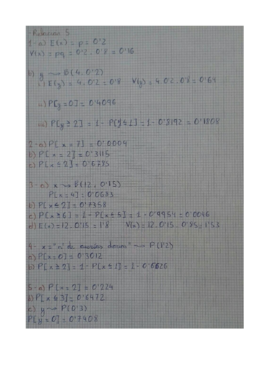 Relación 5
1-a) E(x) = p = 0'2
V(x) = pq = 0'2 . 0'8 = 0'16
b) y ~ B(4, 0'2)
i) E(y) = 4 . 0'2 = 0'8 V(y) = 4 . 0'2 . 0'8 = 0'64
ii) P[y = 0] = 0'4096
iii) P[y ≥ 2] = 1 - P[y ≤ 1] = 1 - 0'8192 = 0'1808
2-a) P[x = ] = 0'0004
b) P[x = 2] = 0'3115
c) P[x ≤ 2] =
3-a) x ~ B(12, 0'15)
P[x = 4] = 0'0683
b) P[x ≤ 2] = 0'7358
c) P[x ≥ 6] = 1 - P[x ≤ 5] = 1 - 0'9954 = 0'0046
d) E(x) = 12 . 0'15 = 1'8 V(x) = 12 . 0'15 . 0'85 = 1'53
4- x = "nº de " ~ P(1'2)
a) P[x = 0] = 0'3012
b) P[x ≥ 2] = 1 - P[x ≤ 1] = 1 - 0'6626
5-a) P[x = 2] = 0'224
b) P[x ≤ 3] = 0'6472
c) y ~ P(0'3)
P[y = 0] = 0'7408